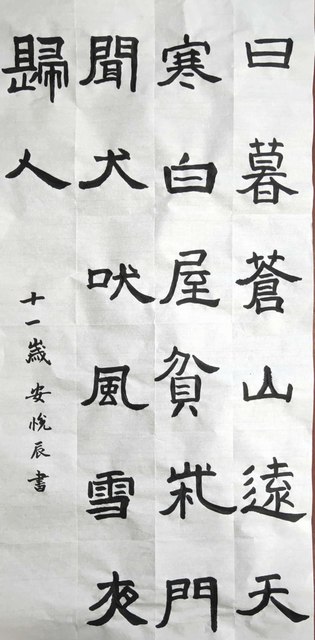 日暮蒼山遠天
寒白屋貧柴門
聞犬吠風雪夜
歸人
十一嵗安悅辰書